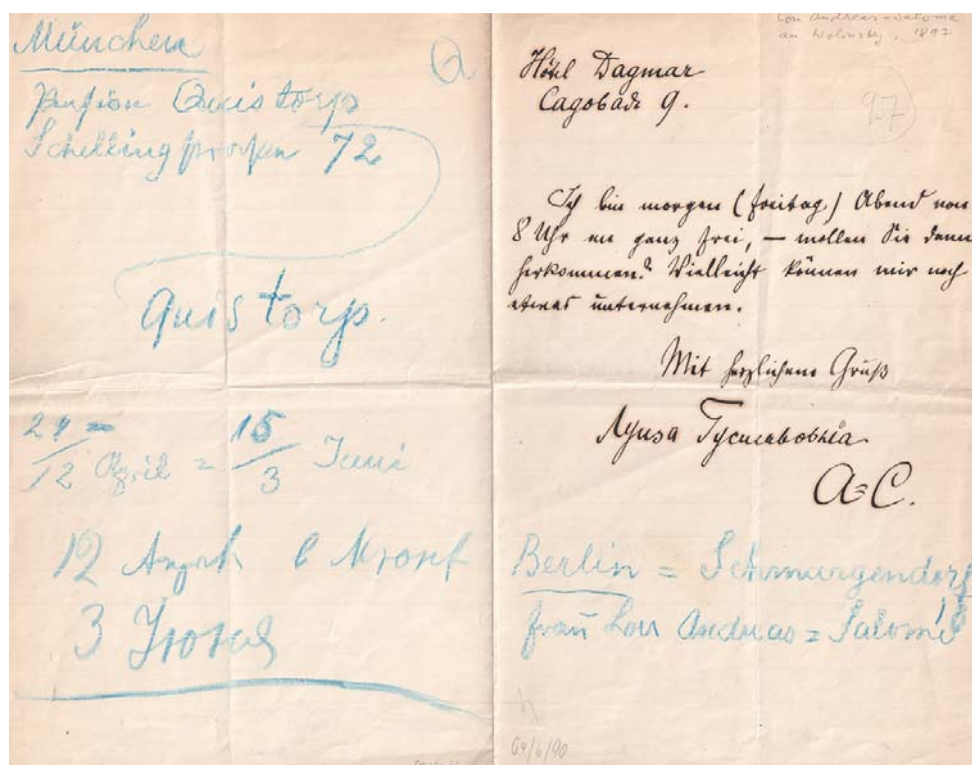 München
Pension Quistorp
Schellingstrassen 72
Quistorp.
24 = 15
12 April = 3 Juni
12
3 Июня
Lou Andreas-Salomé
an Wolinsky, 1897
Hôtel Dagmar
Садовая 9.
27
Ich bin morgen (Freitag) Abend von
8 Uhr an ganz frei, — wollen Sie dann
herkommen? Vielleicht können wir noch
etwas unternehmen.
Mit herzlichem Gruß
Луиза Густавовна
A=C.
Berlin = Schmargendorf
Frau Lou Andreas=Salomé